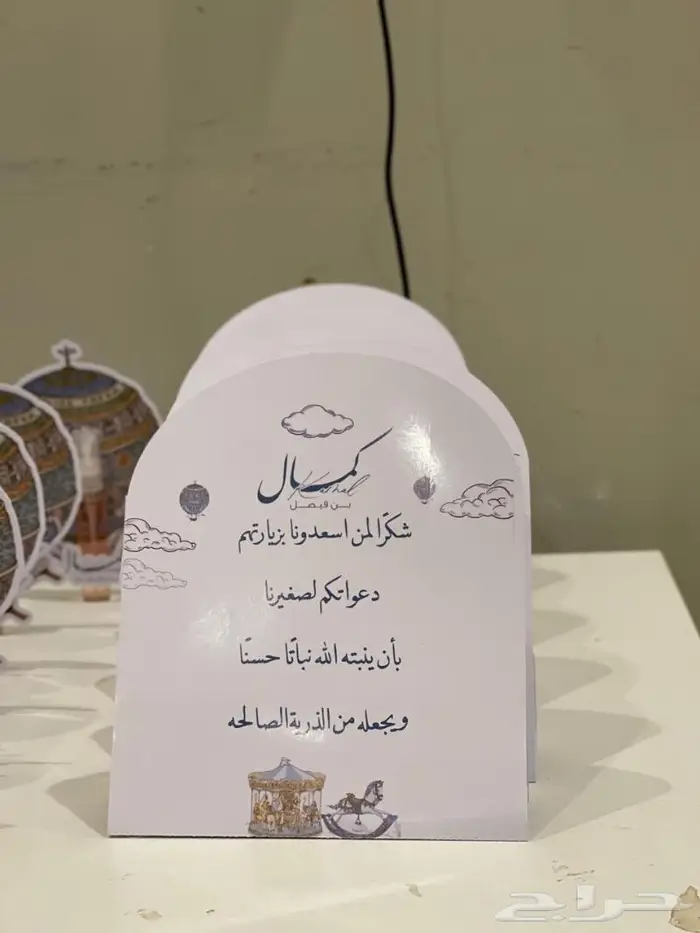 كمال
Kamal
بن فيصل
شكرًا لمن اسعدونا بزيارتهم
دعواتكم لصغيرنا
بأن ينبته الله نباتًا حسنًا
ويجعله من الذرية الصالحه
حراج